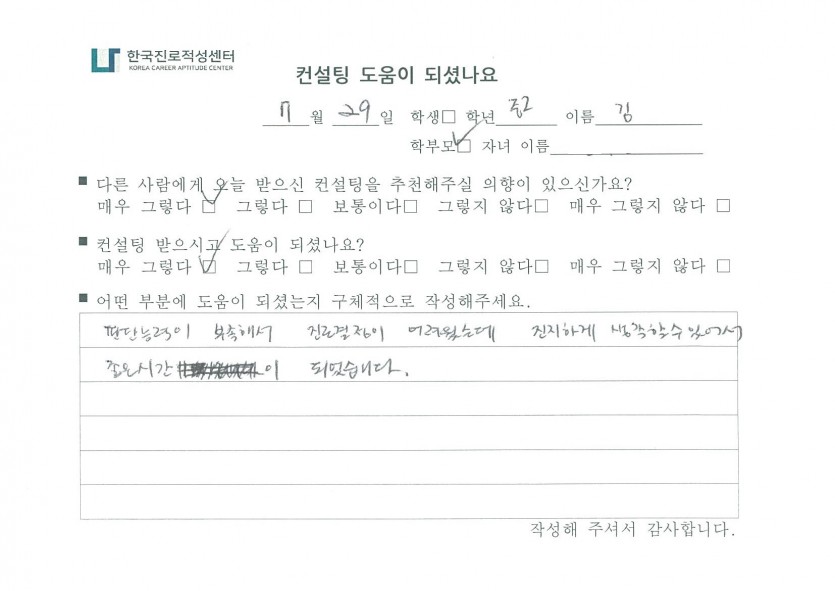 한국진로적성센터
KOREA CAREER APTITUDE CENTER
컨설팅 도움이 되셨나요
7월 29일 학생□ 학년 중2 이름 김
학부모☑ 자녀 이름
■ 다른 사람에게 오늘 받으신 컨설팅을 추천해주실 의향이 있으신가요?
매우 그렇다 ☑ 그렇다 □ 보통이다□ 그렇지 않다□ 매우 그렇지 않다 □
■ 컨설팅 받으시고 도움이 되셨나요?
매우 그렇다 ☑ 그렇다 □ 보통이다□ 그렇지 않다□ 매우 그렇지 않다 □
■ 어떤 부분에 도움이 되셨는지 구체적으로 작성해주세요.
판단능력이 부족해서 진로결정이 어려웠는데 진지하게 생각할수있어서
좋은시간이 되었습니다.
작성해 주셔서 감사합니다.